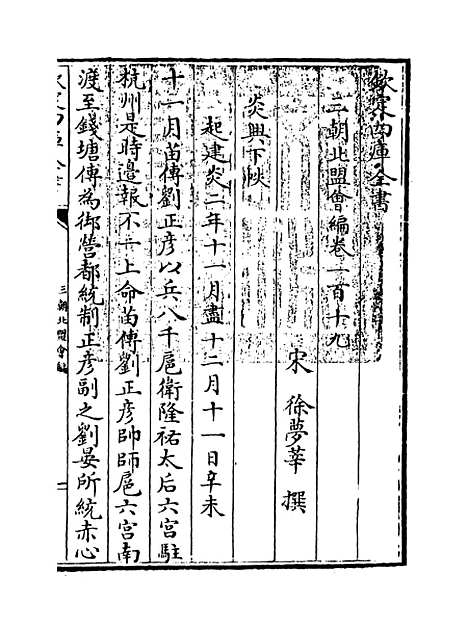 欽定四庫全書
三朝北盟會編卷一百十九
宋 徐夢莘 撰
炎興下帙
起建炎二年十一月盡十二月十一日辛未
十一月苗傅劉正彦以兵八千扈衛隆祐太后六宫駐
杭州是時邊報不一上命苗傅劉正彦帥師扈六宫南
渡至錢塘傅為御營都統制正彦副之劉晏所統赤心
三朝北盟會編
一